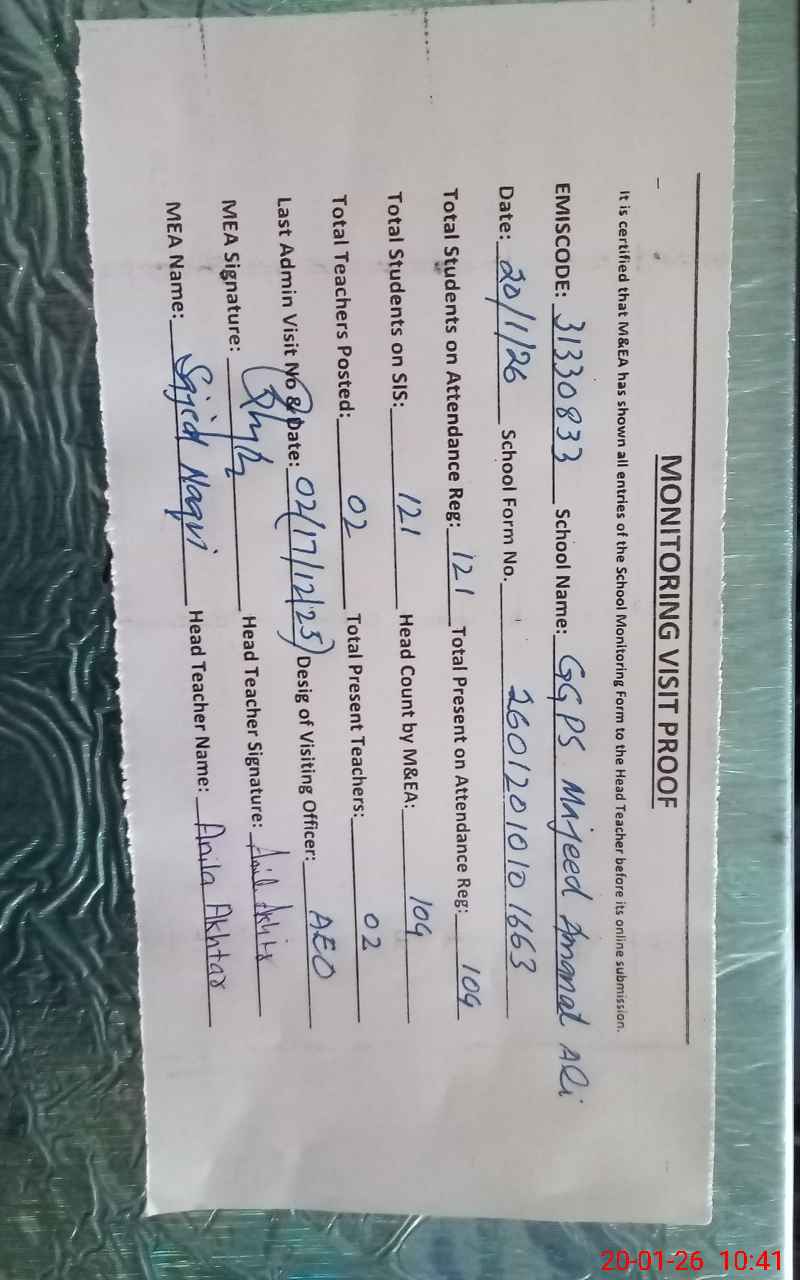 MONITORING VISIT PROOF
It is certified that M&EA has shown all entries of the School Monitoring Form to the Head Teacher before its online submission.
EMISCODE: 31330833 School Name: GGPS Majeed Amanat Ali
Date: 20/1/26 School Form No. 2601201010 1663
Total Students on Attendance Reg: 121 Total Present on Attendance Reg: 109
Total Students on SIS: 121 Head Count by M&EA: 109
Total Teachers Posted: 02 Total Present Teachers: 02
Last Admin Visit No & Date: 02(17/12/25) Desig of Visiting Officer: AEO
MEA Signature: Head Teacher Signature: Anila Akhtar
MEA Name: Sajid Naqvi Head Teacher Name: Anila Akhtar
20-01-26 10:41